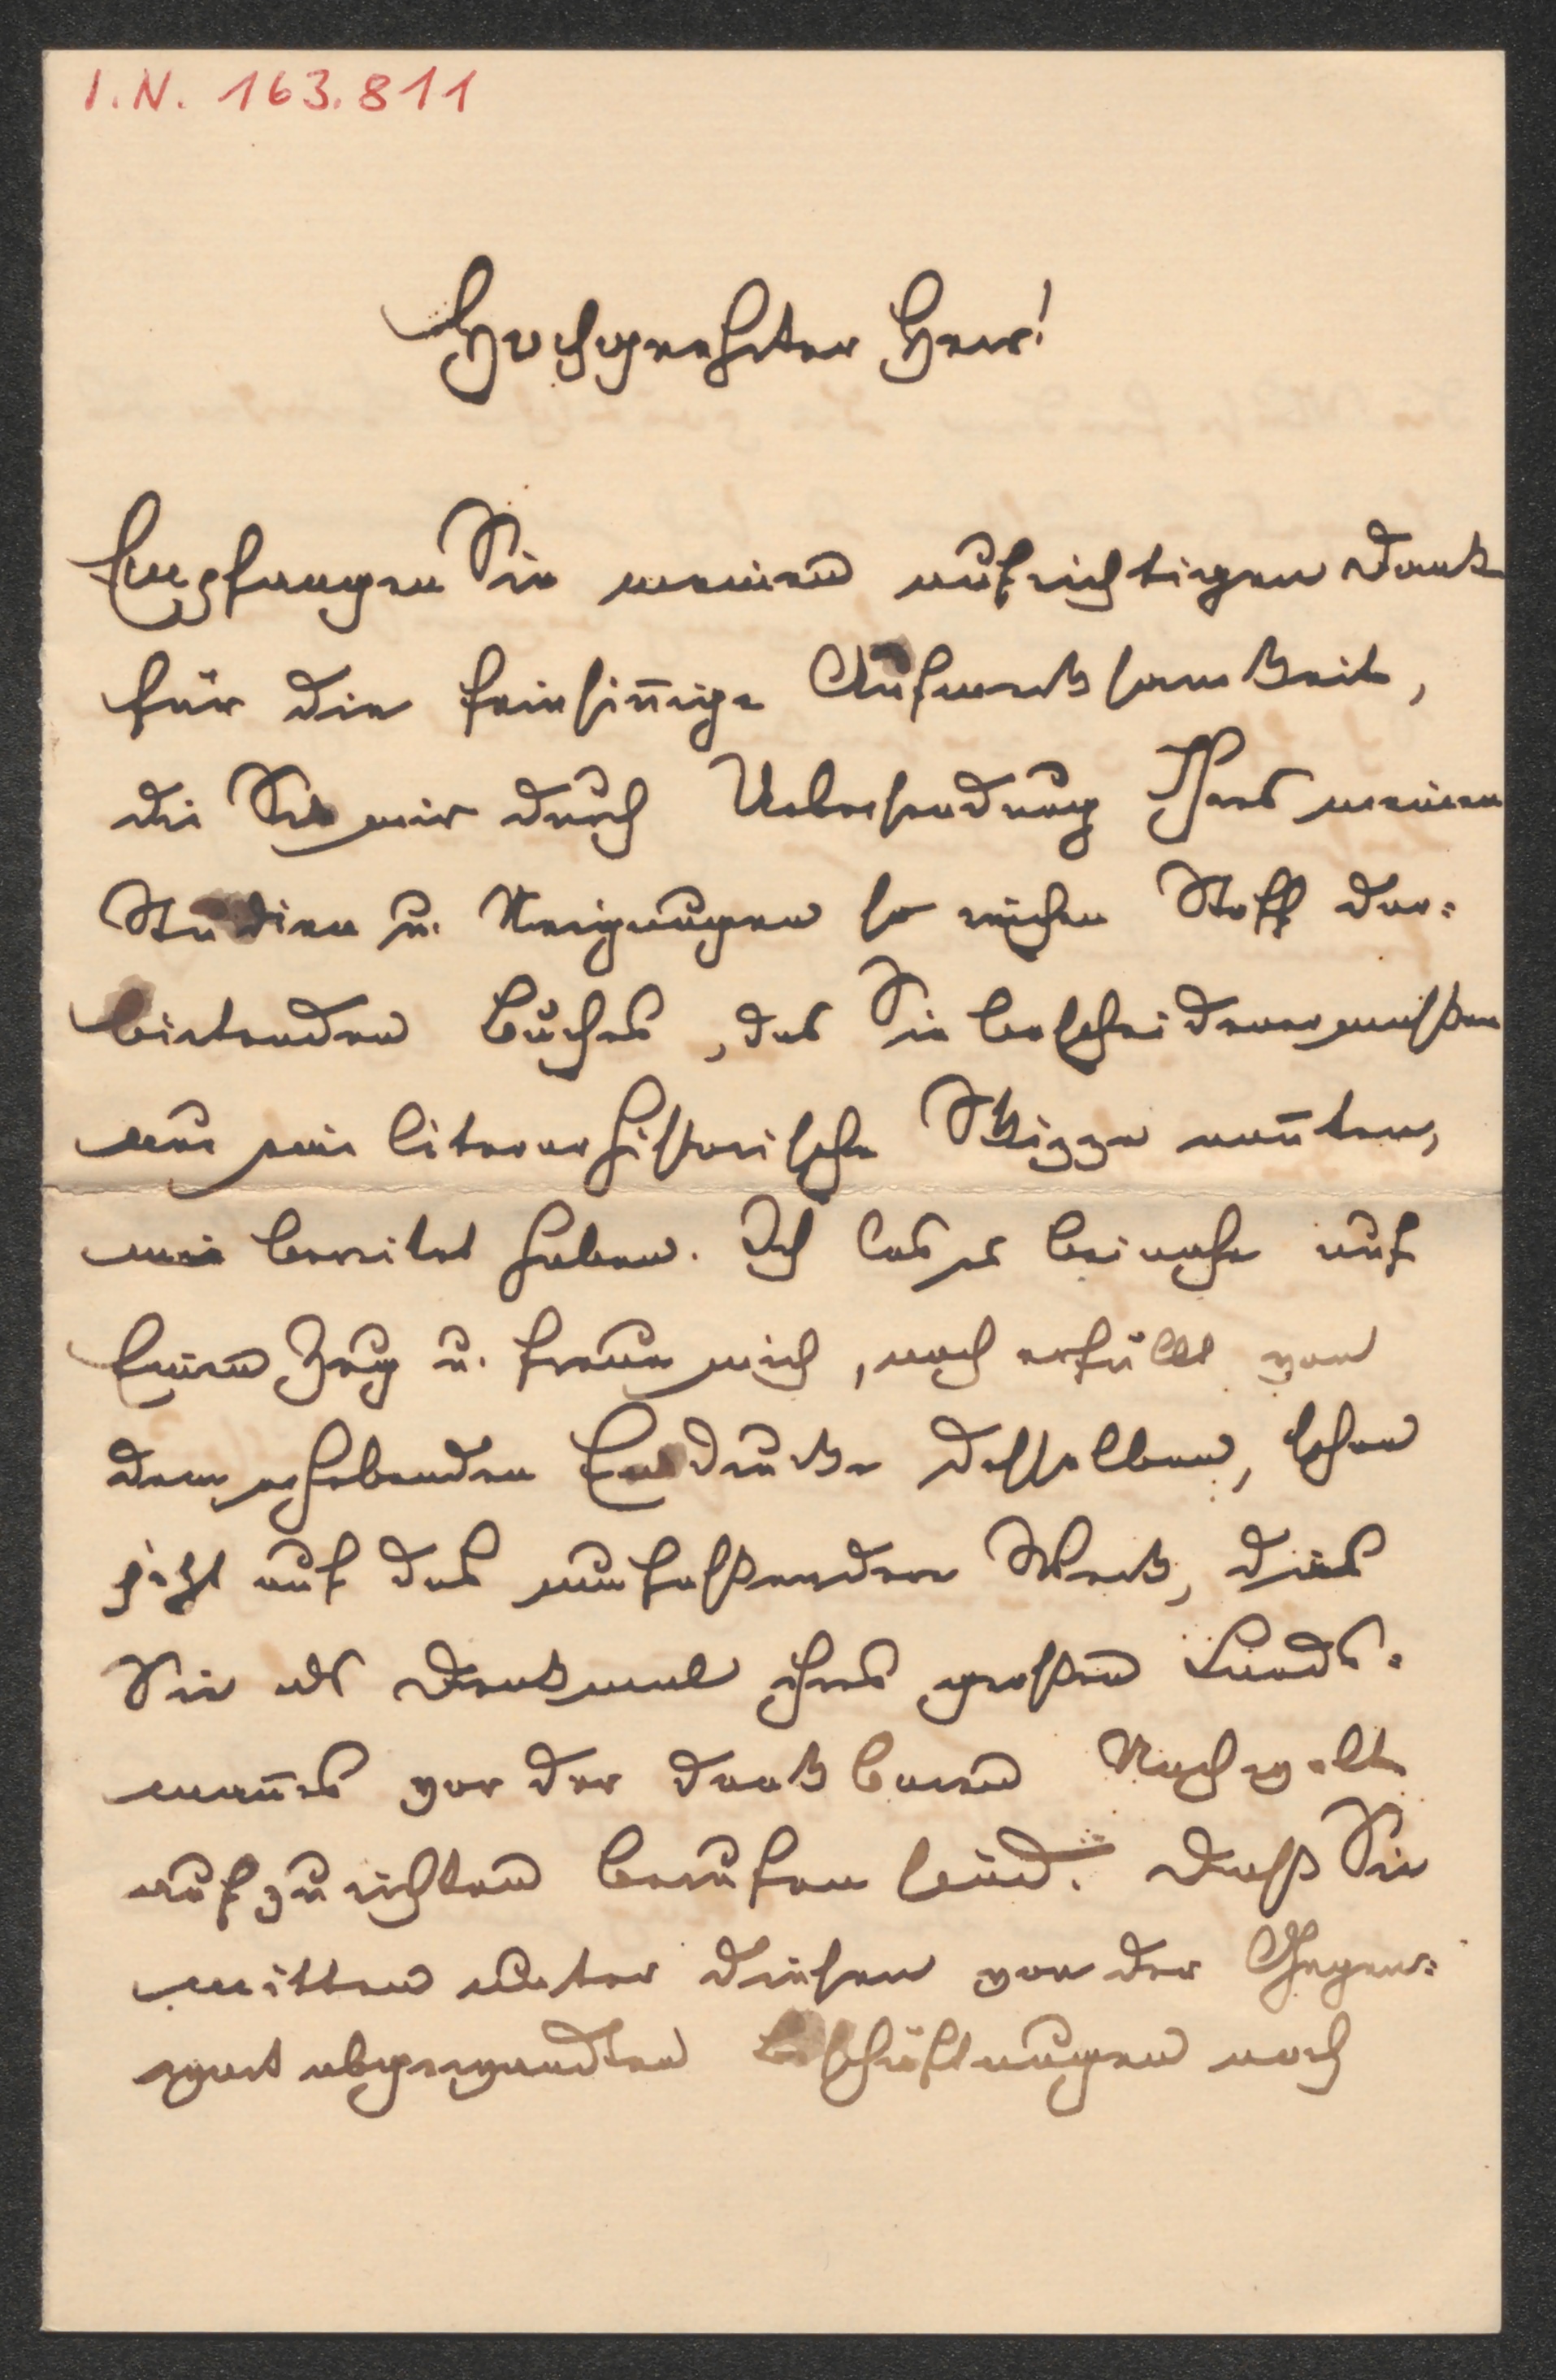 I.N. 163.811
Hochgeehrter Herr!
Empfangen Sie meinen aufrichtigen Dank
für die feinsin̄ige Aufmerksamkeit,
die Sie mir durch Uebersendung Ihres meinen
Studien u. Neigungen so reichen Stoff dar=
bietenden Buches, das Sie bescheidenermaßen
nur eine literarhistorische Skizze nan̄ten,
mir bereitet haben. Ich las es beinahe auf
Einen Zug u. freue mich, noch erfüllt von
dem erhebenden Eindrucke desselben, schon
jetzt auf das umfassendere Werk, das
Sie als Denkmal ihres großen Lands=
man̄es vor der dankbaren Nachwelt
aufzurichten berufen sind. Dass Sie
mitten unter diesen von der Gegen=
wart abgewandten Beschäftigungen noch